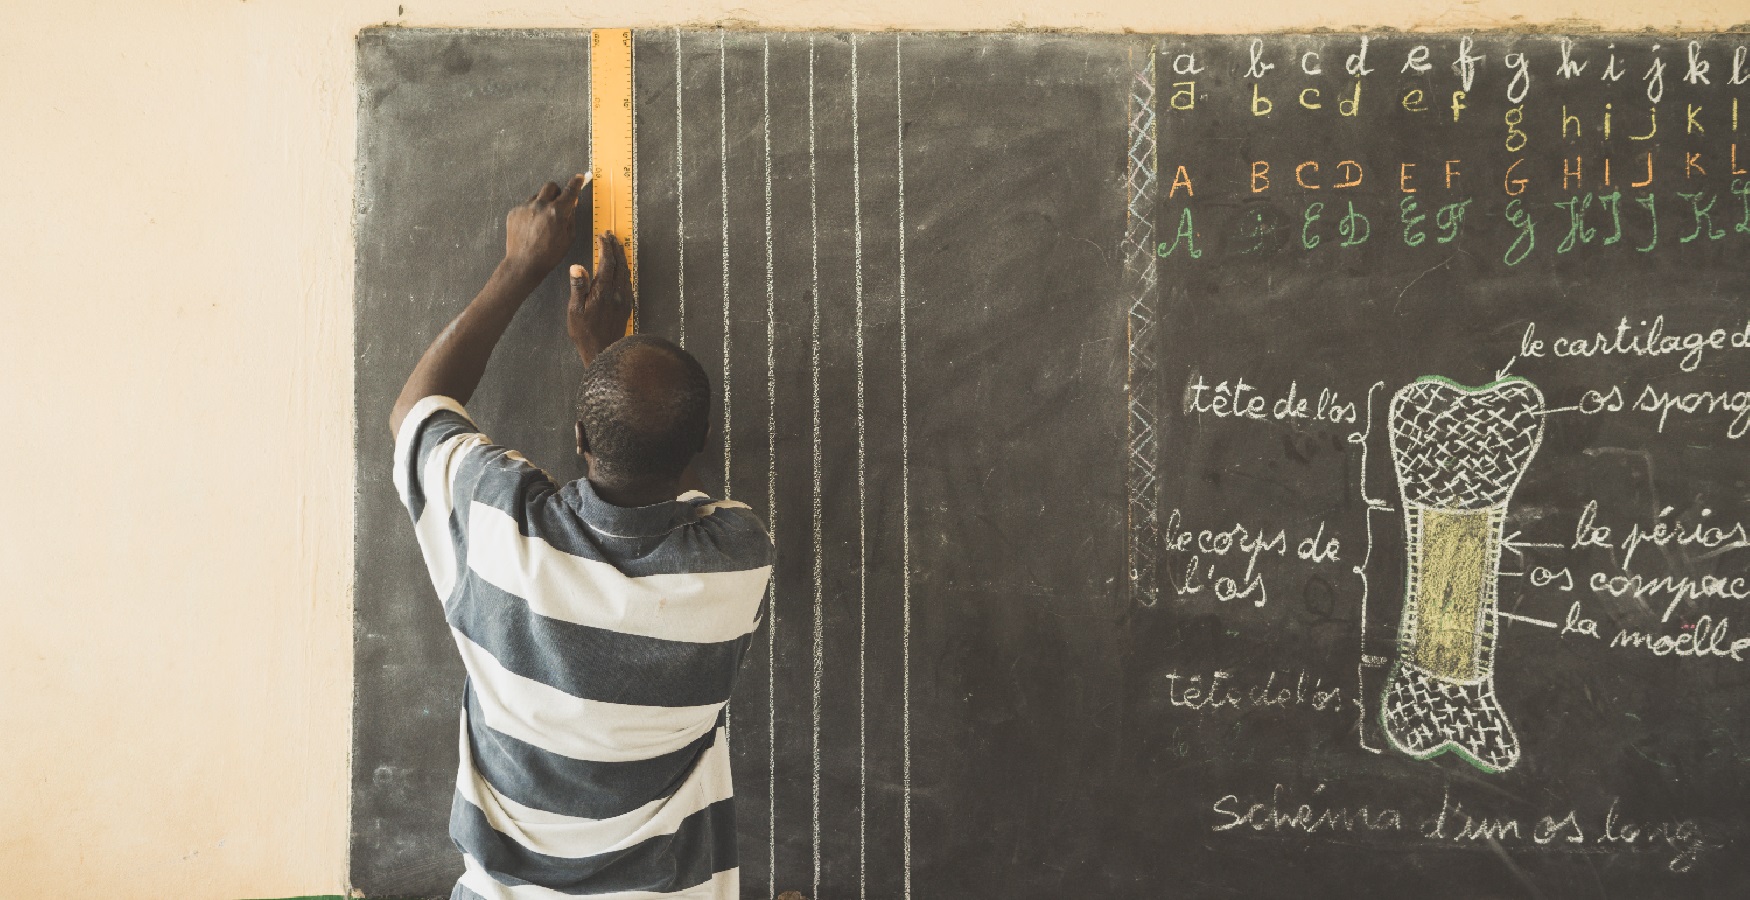 a b c d e f g h i j k l
a b c d e f g h i j k l
A B C D E F G H I J K L
A C D E F G H I J K L
le cartilage d
tête de l'os
os spong
le corps de
l'os
le périos
os compac
la moëlle
tête de l'os
Schéma d'un os long